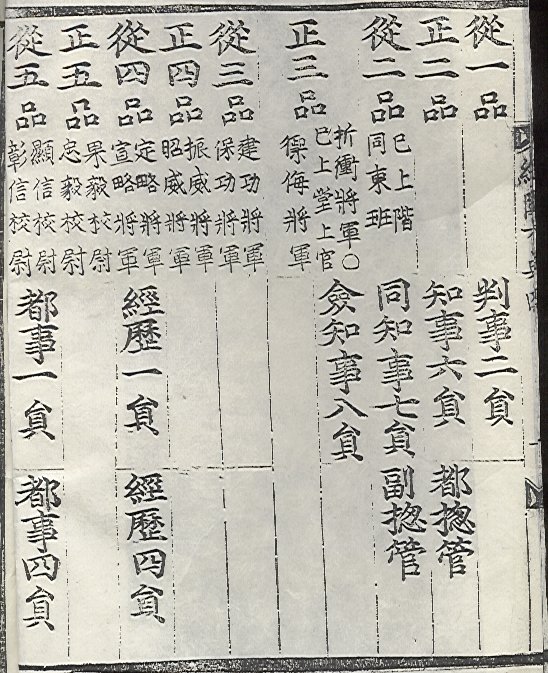 從一品 判事二員
正二品 知事六員 都揔管
從二品 已上階同東班 同知事七員 副揔管
正三品 折衝將軍○已上堂上官 僉知事八員
禦侮將軍
從三品 建功將軍 保功將軍
正四品 振威將軍 昭威將軍
從四品 定略將軍 宣略將軍 經歷一員 經歷四員
正五品 果毅校尉 忠毅校尉
從五品 顯信校尉 彰信校尉 都事一員 都事四員